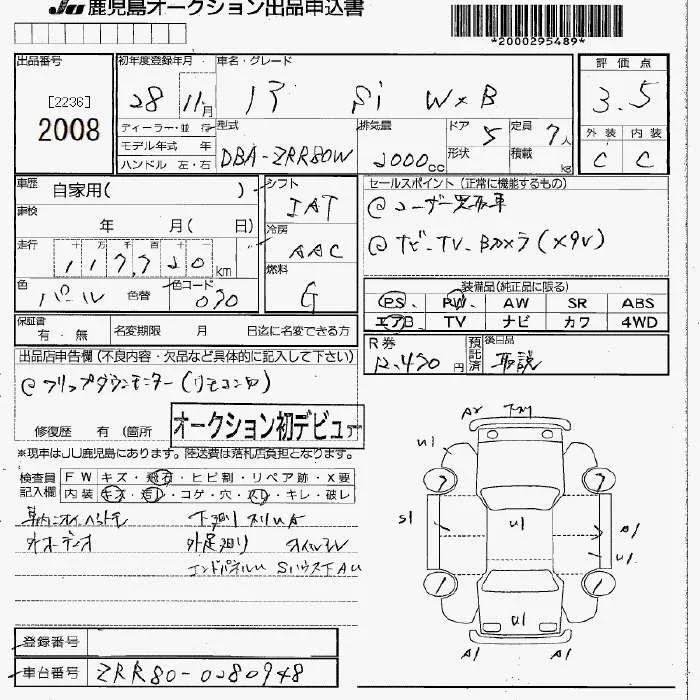 JU 鹿児島オークション出品申込書
*2000295489*
出品番号
[2236]
2008
初年度登録年月
28 11月
車名・グレード
Si W×B
評価点
3.5
外装 内装
C C
ディーラー・並行
モデル年式 年
ハンドル 左・右
型式
DBA-ZRR80W
排気量
2000cc
ドア 5
形状
定員 7人
積載 kg
車歴
自家用( )
車検
年 月( 日)
走行
117,720 km
色
パール
色替
色コード
070
シフト
IAT
冷房
AAC
燃料
G
セールスポイント (正常に機能するもの)
@ユーザー買取車
@ナビ-TV、Bカメラ(×9V)
装備品(純正品に限る)
PS PW AW SR ABS
エアB TV ナビ カワ 4WD
R券
12,470円
預託済
後日品
取説
保証書
有・無
名変期限 月 日迄に名変できる方
出品店申告欄 (不良内容・欠品など具体的に記入して下さい)
@フリップダウンモニター(リモコン
修復歴 有 (箇所
オークション初デビュー
※現車はJU鹿児島にあります。陸送費は落札店負担となります。
検査員記入欄
FW キズ・飛石・ヒビ割・リペア跡・X要
内装 キズ・汚レ・コゲ・穴・スレ・キレ・破レ
下廻り
外オーディオ 外足廻り
エンドパネルU
A2
U1
S1
U1
A1
U1
U1
A1 A1
登録番号
車台番号
ZRR80-0280948